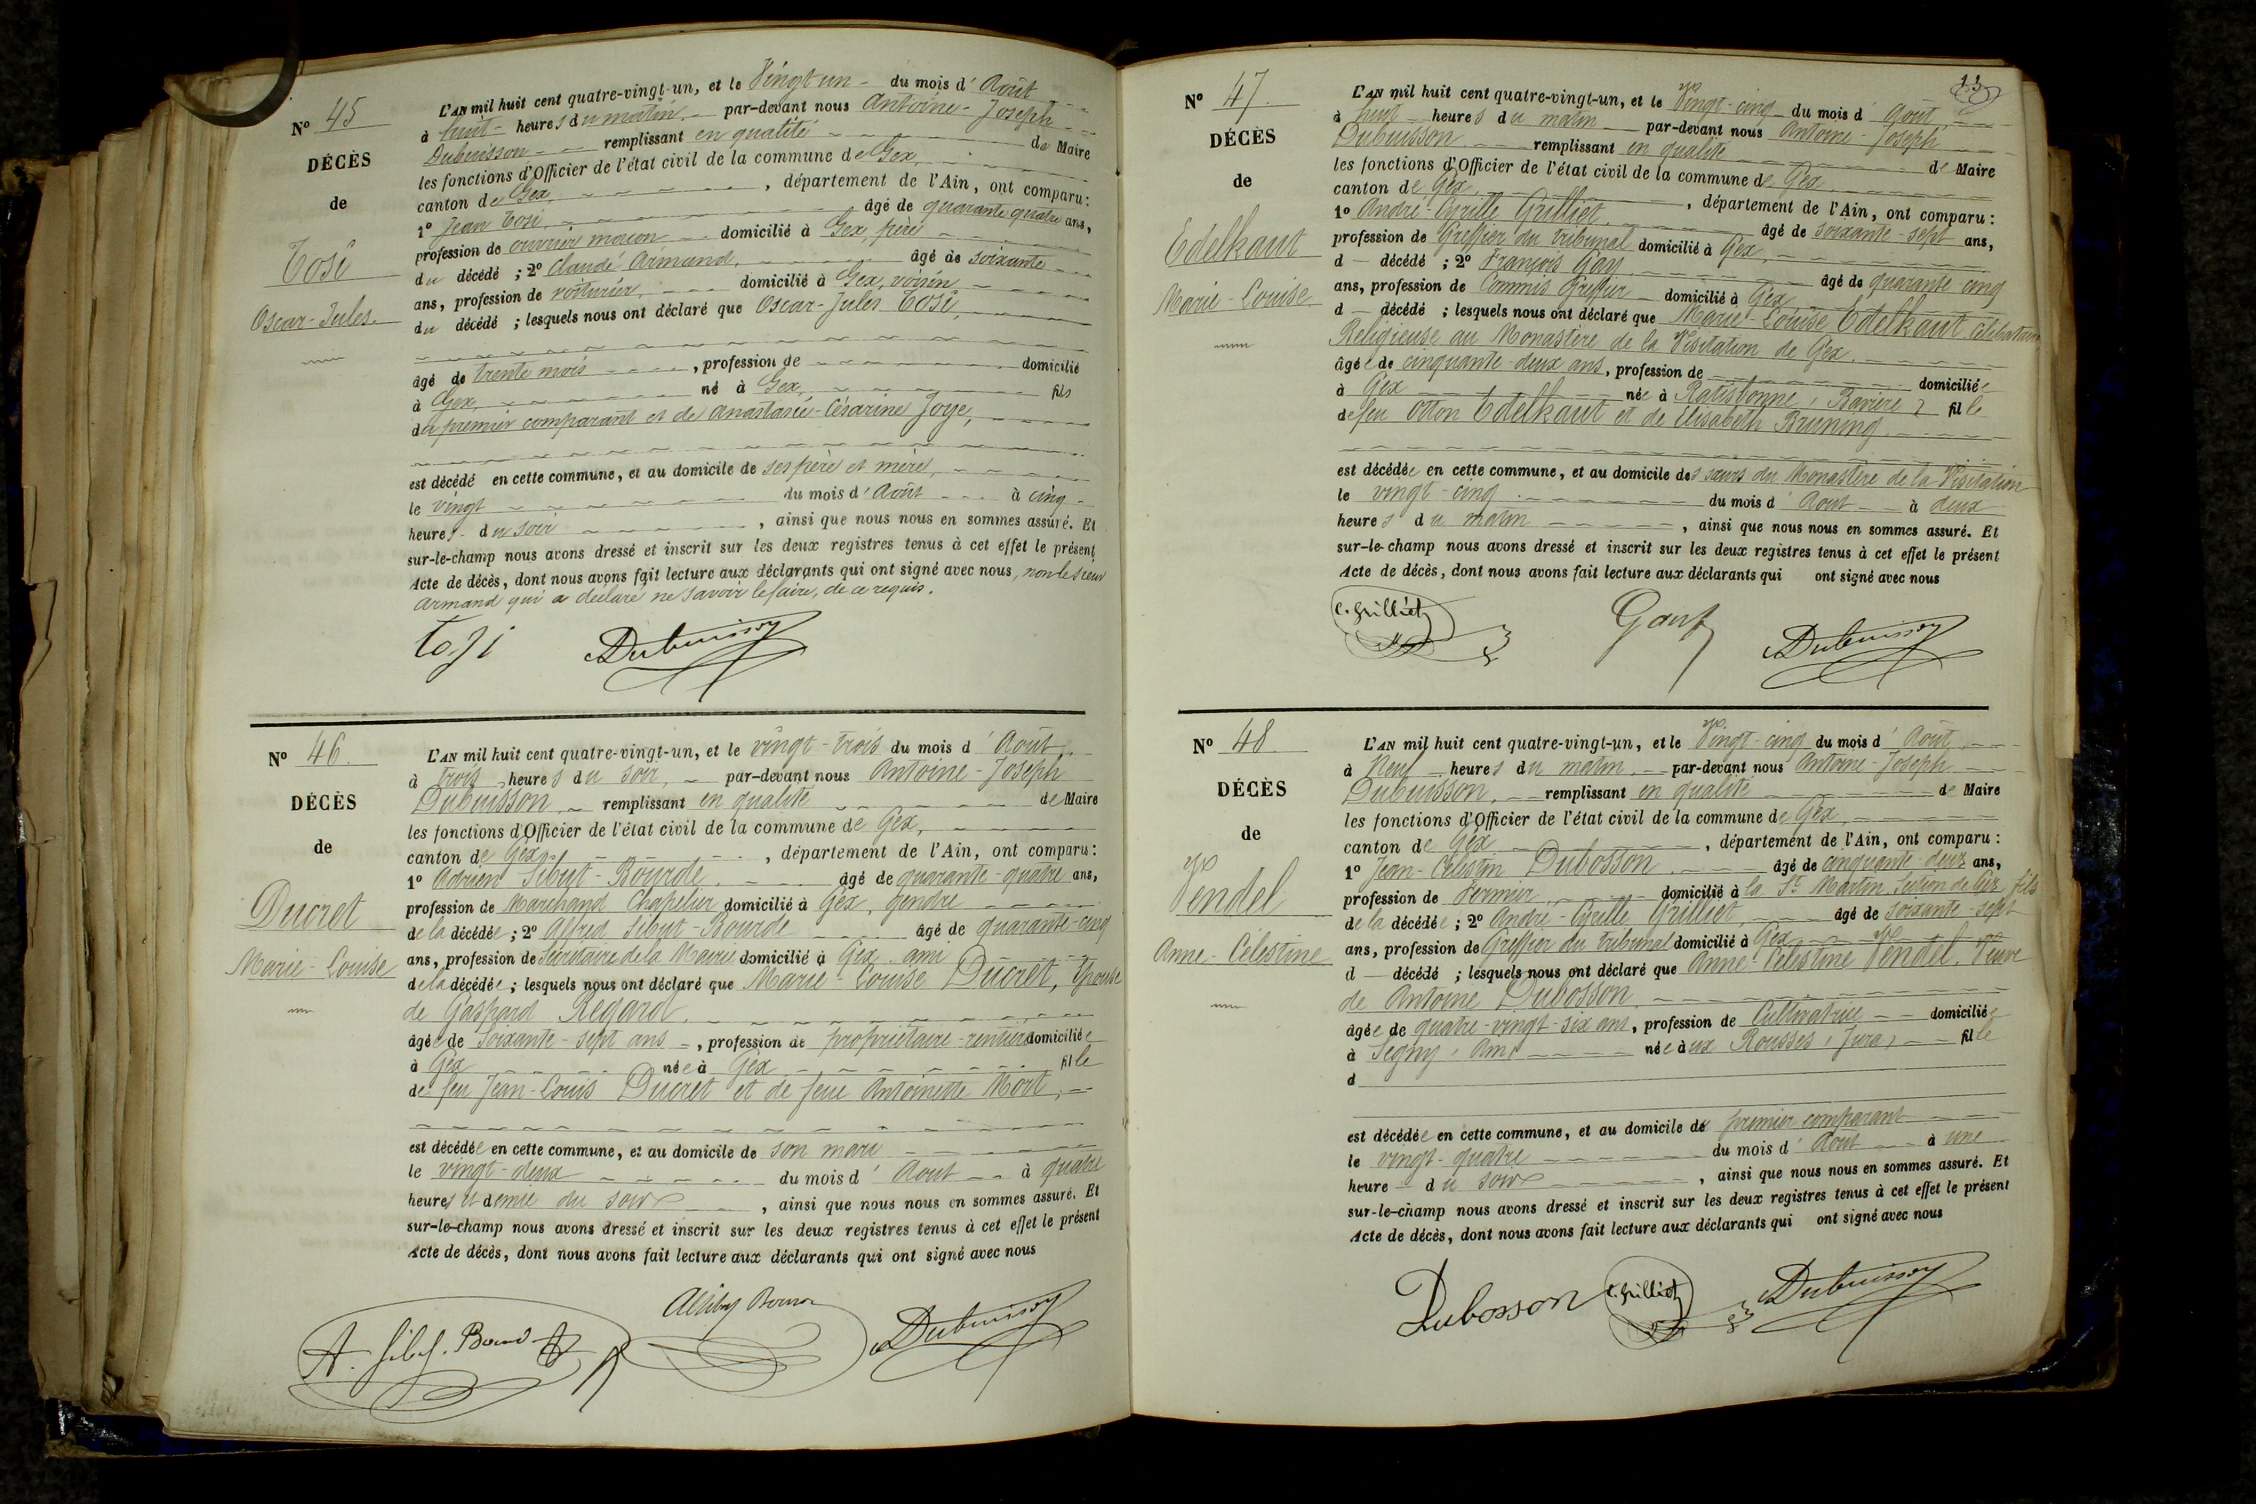 Nº 45
DÉCÈS
de
Tosi
Oscar-Jules.
L'AN mil huit cent quatre-vingt-un, et le Vingt un du mois d'Août
à huit heures du matin, par-devant nous Antoine-Joseph
Dubuisson remplissant en qualité de Maire
les fonctions d'Officier de l'état civil de la commune de Gex,
canton de Gex, , département de l'Ain, ont comparu:
1º Jean Tosi, âgé de quarante quatre ans,
profession de ouvrier maçon domicilié à Gex, père
du décédé ; 2º Claude Armand, âgé de soixante
ans, profession de voiturier, domicilié à Gex, voisin
du décédé ; lesquels nous ont déclaré que Oscar-Jules Tosi,
âgé de trente mois , profession de domicilié
à Gex, né à Gex, fils
du premier comparant et de Anastasie-Césarine Joye,
est décédé en cette commune, et au domicile de ses père et mère,
le vingt du mois d'Août à cinq
heures du soir , ainsi que nous nous en sommes assuré. Et
sur-le-champ nous avons dressé et inscrit sur les deux registres tenus à cet effet le présent
Acte de décès, dont nous avons fait lecture aux déclarants qui ont signé avec nous, non le sieur
Armand qui a déclaré ne savoir le faire, de ce requis.
Tosi Dubuisson
Nº 46.
DÉCÈS
de
Ducret
Marie-Louise
L'AN mil huit cent quatre-vingt-un, et le vingt-trois du mois d'Août
à trois heures du soir, par-devant nous Antoine-Joseph
Dubuisson, remplissant en qualité de Maire
les fonctions d'Officier de l'état civil de la commune de Gex,
canton de Gex , département de l'Ain, ont comparu:
1º Adrien Sibut-Bourde, âgé de quarante-quatre ans,
profession de Marchand Chapelier domicilié à Gex, gendre
de la décédée; 2º Alfred Sibut-Bourde âgé de quarante-cinq
ans, profession de Secrétaire de la Mairie domicilié à Gex ami
de la décédée; lesquels nous ont déclaré que Marie-Louise Ducret, Epouse
de Gaspard Regard,
âgée de Soixante-sept ans , profession de propriétaire-rentière domiciliée
à Gex née à Gex fille
de feu Jean-Louis Ducret et de feue Antoinette Mort,
est décédée en cette commune, et au domicile de son mari
le vingt-deux du mois d'Août à quatre
heures et demie du soir , ainsi que nous nous en sommes assuré. Et
sur-le-champ nous avons dressé et inscrit sur les deux registres tenus à cet effet le présent
Acte de décès, dont nous avons fait lecture aux déclarants qui ont signé avec nous
Dubuisson
13
Nº 47.
DÉCÈS
de
Edelkaut
Marie-Louise
L'AN mil huit cent quatre-vingt-un, et le Vingt-cinq du mois d'Août,
à huit heures du matin par-devant nous Antoine-Joseph
Dubuisson remplissant en qualité de Maire
les fonctions d'Officier de l'état civil de la commune de Gex
canton de Gex , département de l'Ain, ont comparu:
1º André-Cyrille Grilliet, âgé de soixante-sept ans,
profession de Greffier du tribunal domicilié à Gex,
d décédé ; 2º François Gay âgé de quarante cinq
ans, profession de Commis Greffier domicilié à Gex
d décédé ; lesquels nous ont déclaré que Marie-Louise Edelkaut célibataire
Religieuse au Monastère de la Visitation de Gex.
âgée de cinquante-deux ans, profession de domiciliée
à Gex née à Ratisbonne (Bavière) fille
de feu Otton Edelkaut et de Elisabeth Bruning
est décédée en cette commune, et au domicile des sœurs du Monastère de la Visitation
le vingt-cinq du mois d'Août à deux
heures du matin , ainsi que nous nous en sommes assuré. Et
sur-le-champ nous avons dressé et inscrit sur les deux registres tenus à cet effet le présent
Acte de décès, dont nous avons fait lecture aux déclarants qui ont signé avec nous
C. Grilliet Dubuisson
Nº 48.
DÉCÈS
de
Vendel
Anne-Célestine
L'AN mil huit cent quatre-vingt-un, et le Vingt-cinq du mois d'Août,
à Neuf heures du matin par-devant nous Antoine-Joseph
Dubuisson, remplissant en qualité de Maire
les fonctions d'Officier de l'état civil de la commune de Gex,
canton de Gex , département de l'Ain, ont comparu:
1º Jean-Célestin Dubosson âgé de cinquante-deux ans,
profession de Fermier domicilié à la St Martin Section de Gex, fils
de la décédée; 2º André-Cyrille Grilliet, âgé de soixante-sept
ans, profession de Greffier du tribunal domicilié à Gex
d décédé ; lesquels nous ont déclaré que Anne-Célestine Vendel, Veuve
de Antoine Dubosson
âgée de quatre-vingt-six ans, profession de Cultivatrice domiciliée
à Segny (Ain) née aux Rousses (Jura) fille
d
est décédée en cette commune, et au domicile de premier comparant
le vingt-quatre du mois d'Août à une
heure du soir , ainsi que nous nous en sommes assuré. Et
sur-le-champ nous avons dressé et inscrit sur les deux registres tenus à cet effet le présent
Acte de décès, dont nous avons fait lecture aux déclarants qui ont signé avec nous
Dubosson C. Grilliet Dubuisson